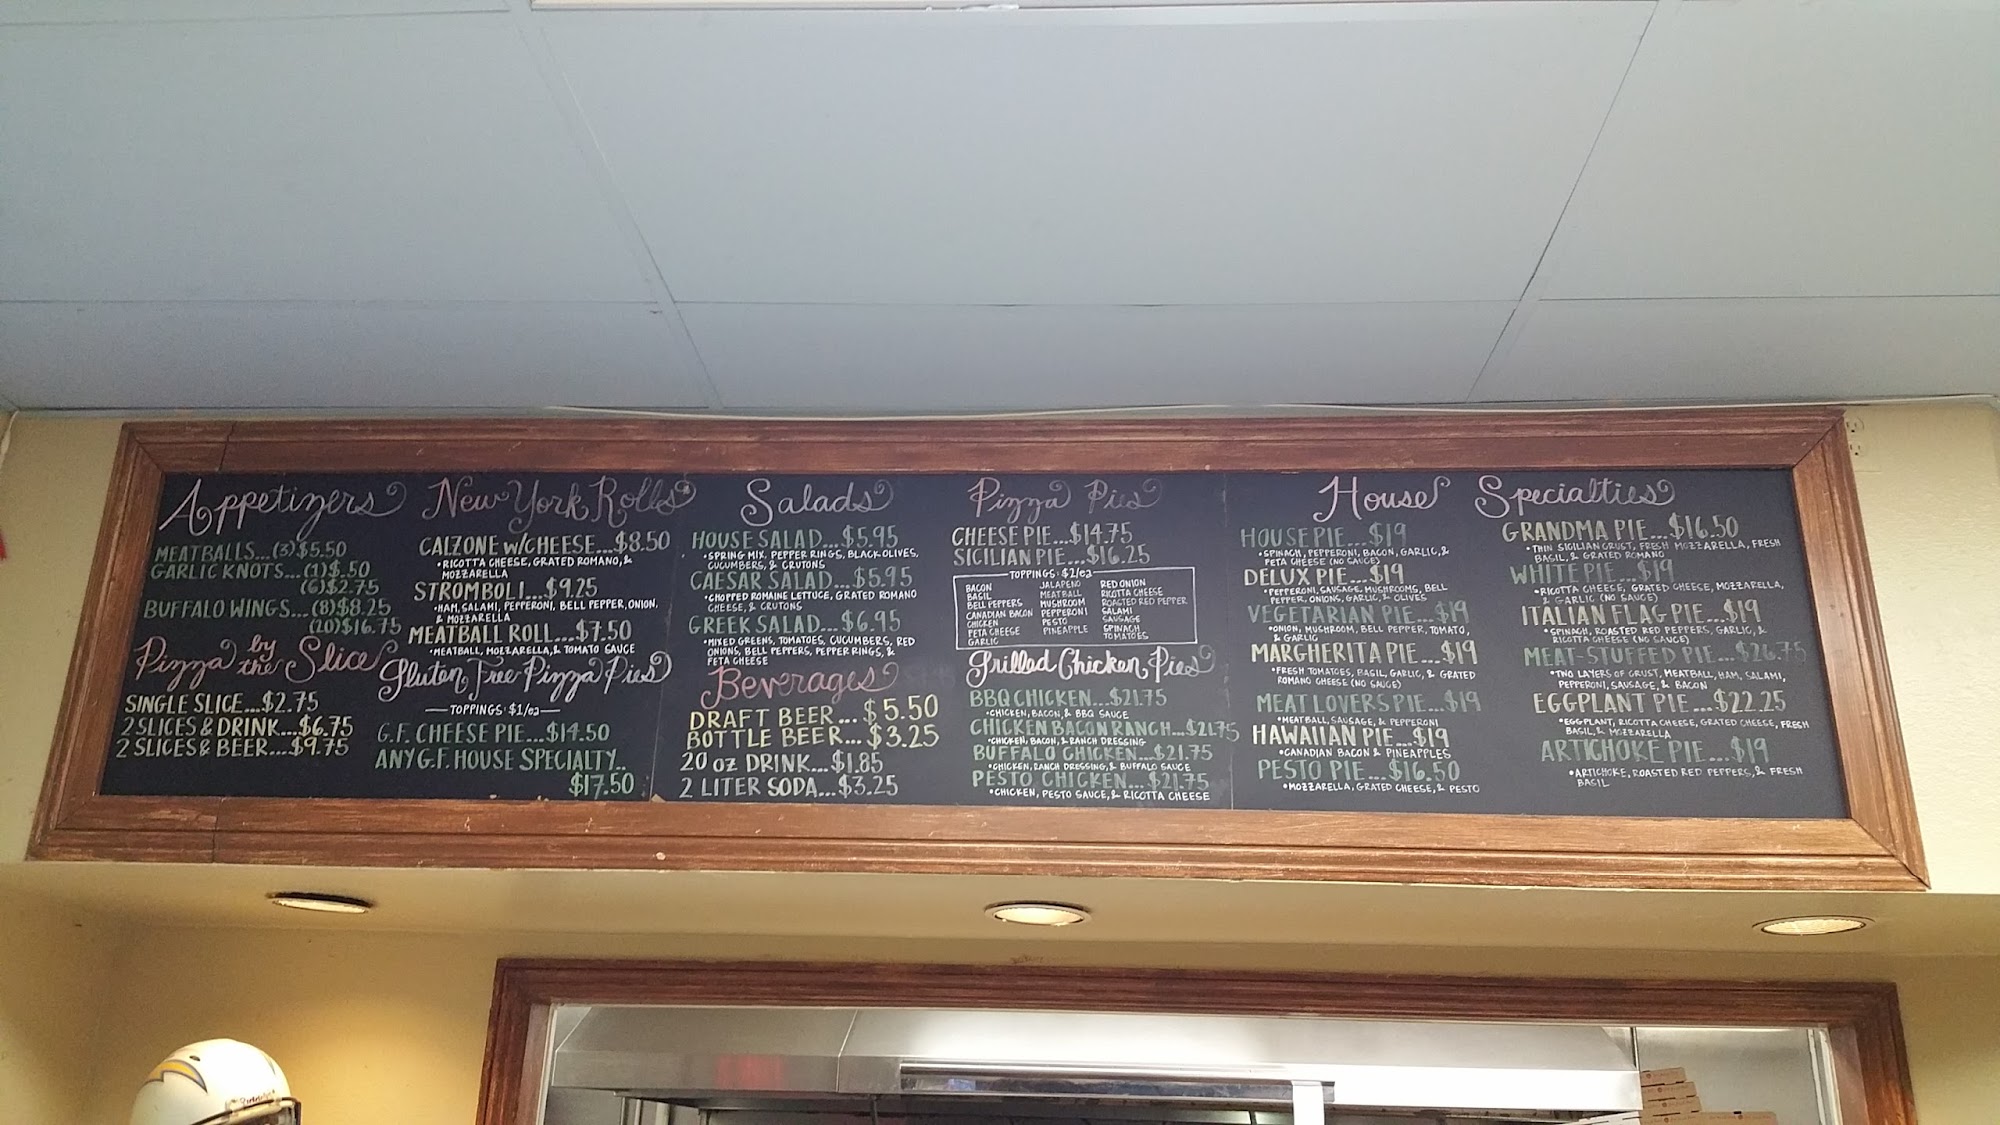 Appetizers
MEATBALLS...(3)$5.50
GARLIC KNOTS...(1)$.50
(6)$2.75
BUFFALO WINGS...(8)$8.25
(20)$16.75
Pizza by the Slice
SINGLE SLICE...$2.75
2 SLICES & DRINK...$6.75
2 SLICES & BEER...$9.75
New York Rolls
CALZONE W/CHEESE...$8.50
•RICOTTA CHEESE, GRATED ROMANO, &
MOZZARELLA
STROMBOLI...$9.25
•HAM, SALAMI, PEPPERONI, BELL PEPPER, ONION,
& MOZZARELLA
MEATBALL ROLL...$7.50
•MEATBALL, MOZZARELLA, & TOMATO SAUCE
Gluten Free Pizza Pies
TOPPINGS $1/ea
G.F. CHEESE PIE...$14.50
ANY G.F. HOUSE SPECIALTY..
$17.50
Salads
HOUSE SALAD...$5.95
•SPRING MIX, PEPPER RINGS, BLACK OLIVES,
CUCUMBERS, & CRUTONS
CAESAR SALAD...$5.95
•CHOPPED ROMAINE LETTUCE, GRATED ROMANO
CHEESE, & CRUTONS
GREEK SALAD...$6.95
•MIXED GREENS, TOMATOES, CUCUMBERS, RED
ONIONS, BELL PEPPERS, PEPPER RINGS, &
FETA CHEESE
Beverages
DRAFT BEER...$5.50
BOTTLE BEER...$3.25
20 oz DRINK...$1.85
2 LITER SODA...$3.25
Pizza Pies
CHEESE PIE...$14.75
SICILIAN PIE...$16.25
TOPPINGS $2/ea
BACON
BASIL
BELL PEPPERS
CANADIAN BACON
CHICKEN
FETA CHEESE
GARLIC
JALAPENO
MEATBALL
MUSHROOM
PEPPERONI
PESTO
PINEAPPLE
RED ONION
RICOTTA CHEESE
ROASTED RED PEPPER
SALAMI
SAUSAGE
SPINACH
TOMATOES
Grilled Chicken Pies
BBQ CHICKEN...$21.75
•CHICKEN, BACON, & BBQ SAUCE
CHICKEN BACON RANCH...$21.75
•CHICKEN, BACON, & RANCH DRESSING
BUFFALO CHICKEN...$21.75
•CHICKEN, RANCH DRESSING, & BUFFALO SAUCE
PESTO CHICKEN...$21.75
•CHICKEN, PESTO SAUCE, & RICOTTA CHEESE
House Specialties
HOUSE PIE...$19
•SPINACH, PEPPERONI, BACON, GARLIC, &
FETA CHEESE (NO SAUCE)
DELUX PIE...$19
•PEPPERONI, SAUSAGE, MUSHROOMS, BELL
PEPPER, ONIONS, GARLIC, & OLIVES
VEGETARIAN PIE...$19
•ONION, MUSHROOM, BELL PEPPER, TOMATO,
& GARLIC
MARGHERITA PIE...$19
•FRESH TOMATOES, BASIL, GARLIC, & GRATED
ROMANO CHEESE (NO SAUCE)
MEAT LOVERS PIE...$19
•MEATBALL, SAUSAGE, & PEPPERONI
HAWAIIAN PIE...$19
•CANADIAN BACON & PINEAPPLES
PESTO PIE...$16.50
•MOZZARELLA, GRATED CHEESE, & PESTO
GRANDMA PIE...$16.50
•THIN SICILIAN CRUST, FRESH MOZZARELLA, FRESH
BASIL, & GRATED ROMANO
WHITE PIE...$19
•RICOTTA CHEESE, GRATED CHEESE, MOZZARELLA,
& GARLIC (NO SAUCE)
ITALIAN FLAG PIE...$19
•SPINACH, ROASTED RED PEPPERS, GARLIC, &
RICOTTA CHEESE (NO SAUCE)
MEAT-STUFFED PIE...$26.75
•TWO LAYERS OF CRUST, MEATBALL, HAM, SALAMI,
PEPPERONI, SAUSAGE, & BACON
EGGPLANT PIE...$22.25
•EGGPLANT, RICOTTA CHEESE, GRATED CHEESE, FRESH
BASIL, & MOZZARELLA
ARTICHOKE PIE...$19
•ARTICHOKE, ROASTED RED PEPPERS, & FRESH
BASIL
Riddell